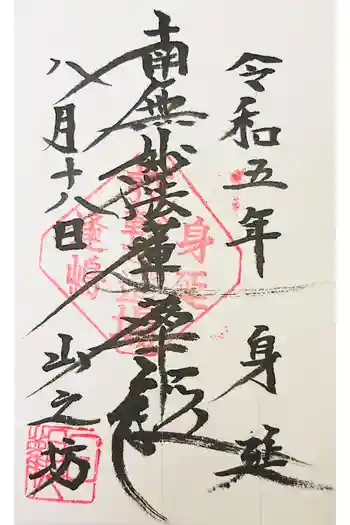 令和五年
身延
南無妙法蓮華経
八月十八日
山之坊
身延